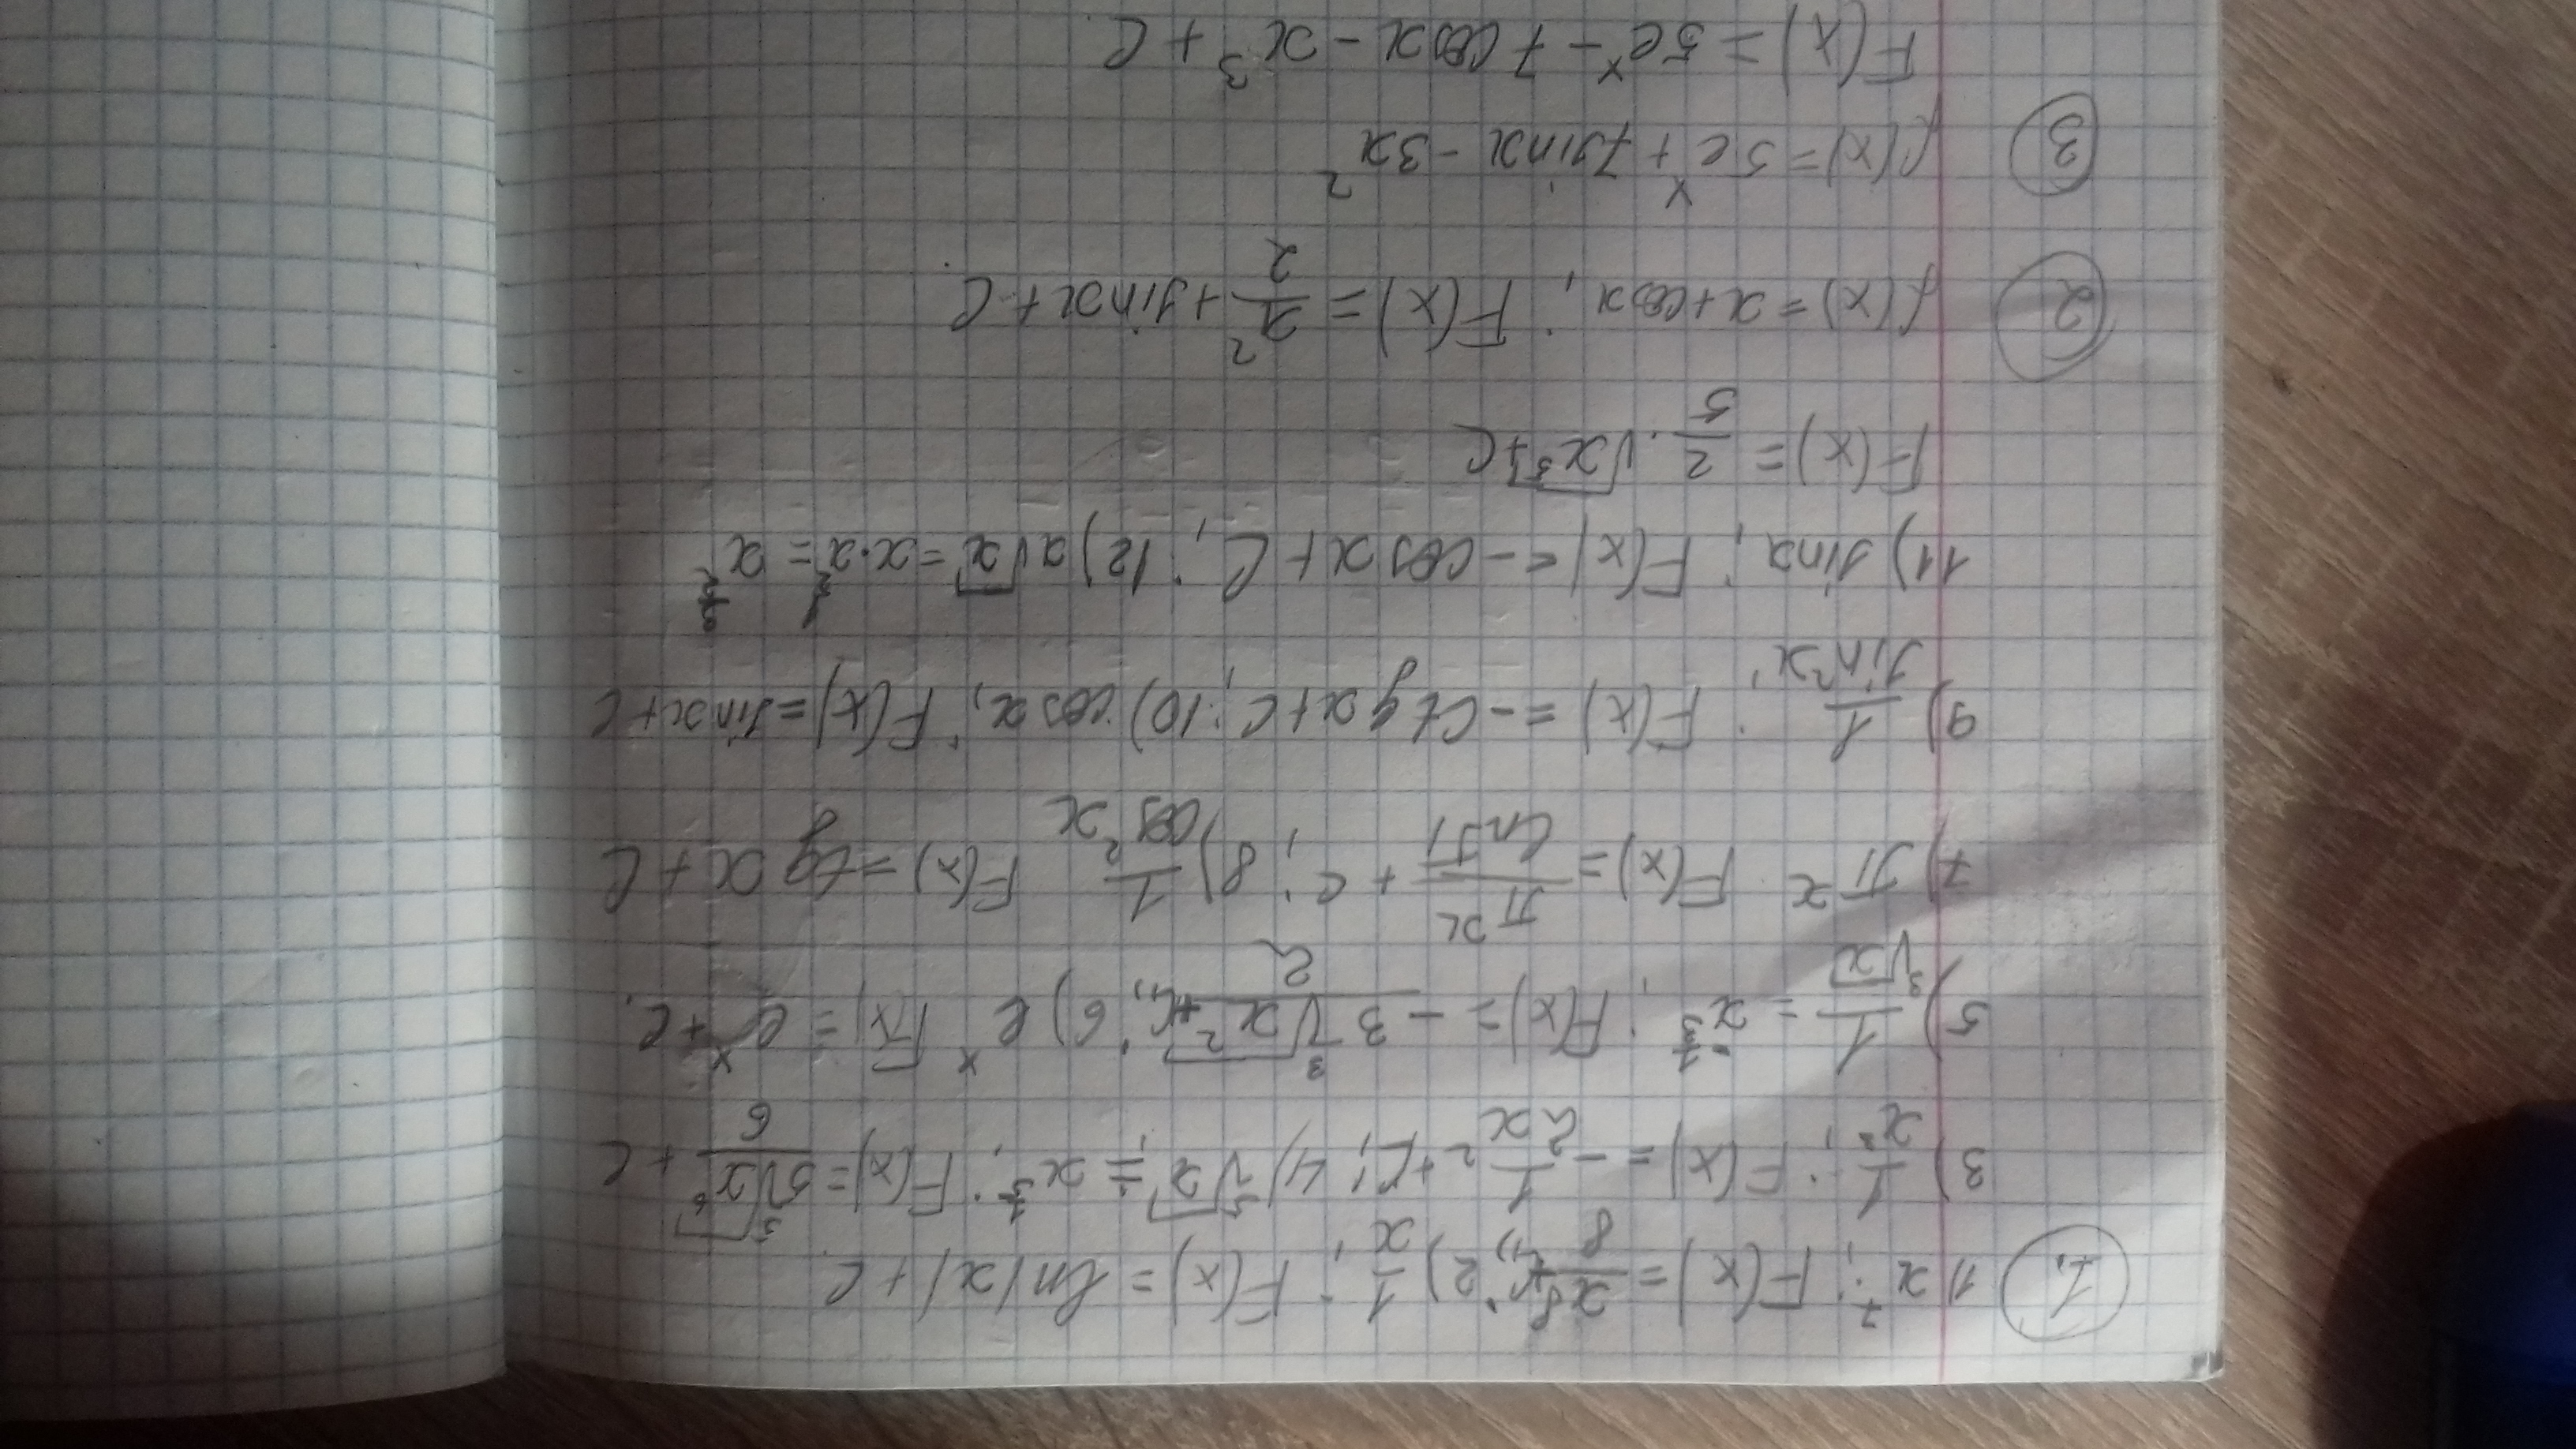 1. 1) x⁷; F(x) = x⁸/8 + C; 2) 1/x; F(x) = ln|x| + C
3) 1/x³; F(x) = -1/2x² + C; 4) ⁵√x = x^(1/5); F(x) = 5⁵√x⁶/6 + C
5) 1/³√x = x^(-1/3); F(x) = -3³√x²/2 + C; 6) eˣ F(x) = eˣ + C.
7) πˣ F(x) = πˣ/lnπ + C; 8) 1/cos²x F(x) = tg x + C
9) 1/sin²x; F(x) = -ctg x + C; 10) cos x; F(x) = sin x + C
11) sin x; F(x) = -cos x + C; 12) x√x = x·x^(1/2) = x^(3/2)
F(x) = 2/5·√x⁵ + C
2 f(x) = x + cos x; F(x) = x²/2 + sin x + C.
3 f(x) = 5eˣ + 7sin x - 3x²
F(x) = 5eˣ - 7cos x - x³ + C.